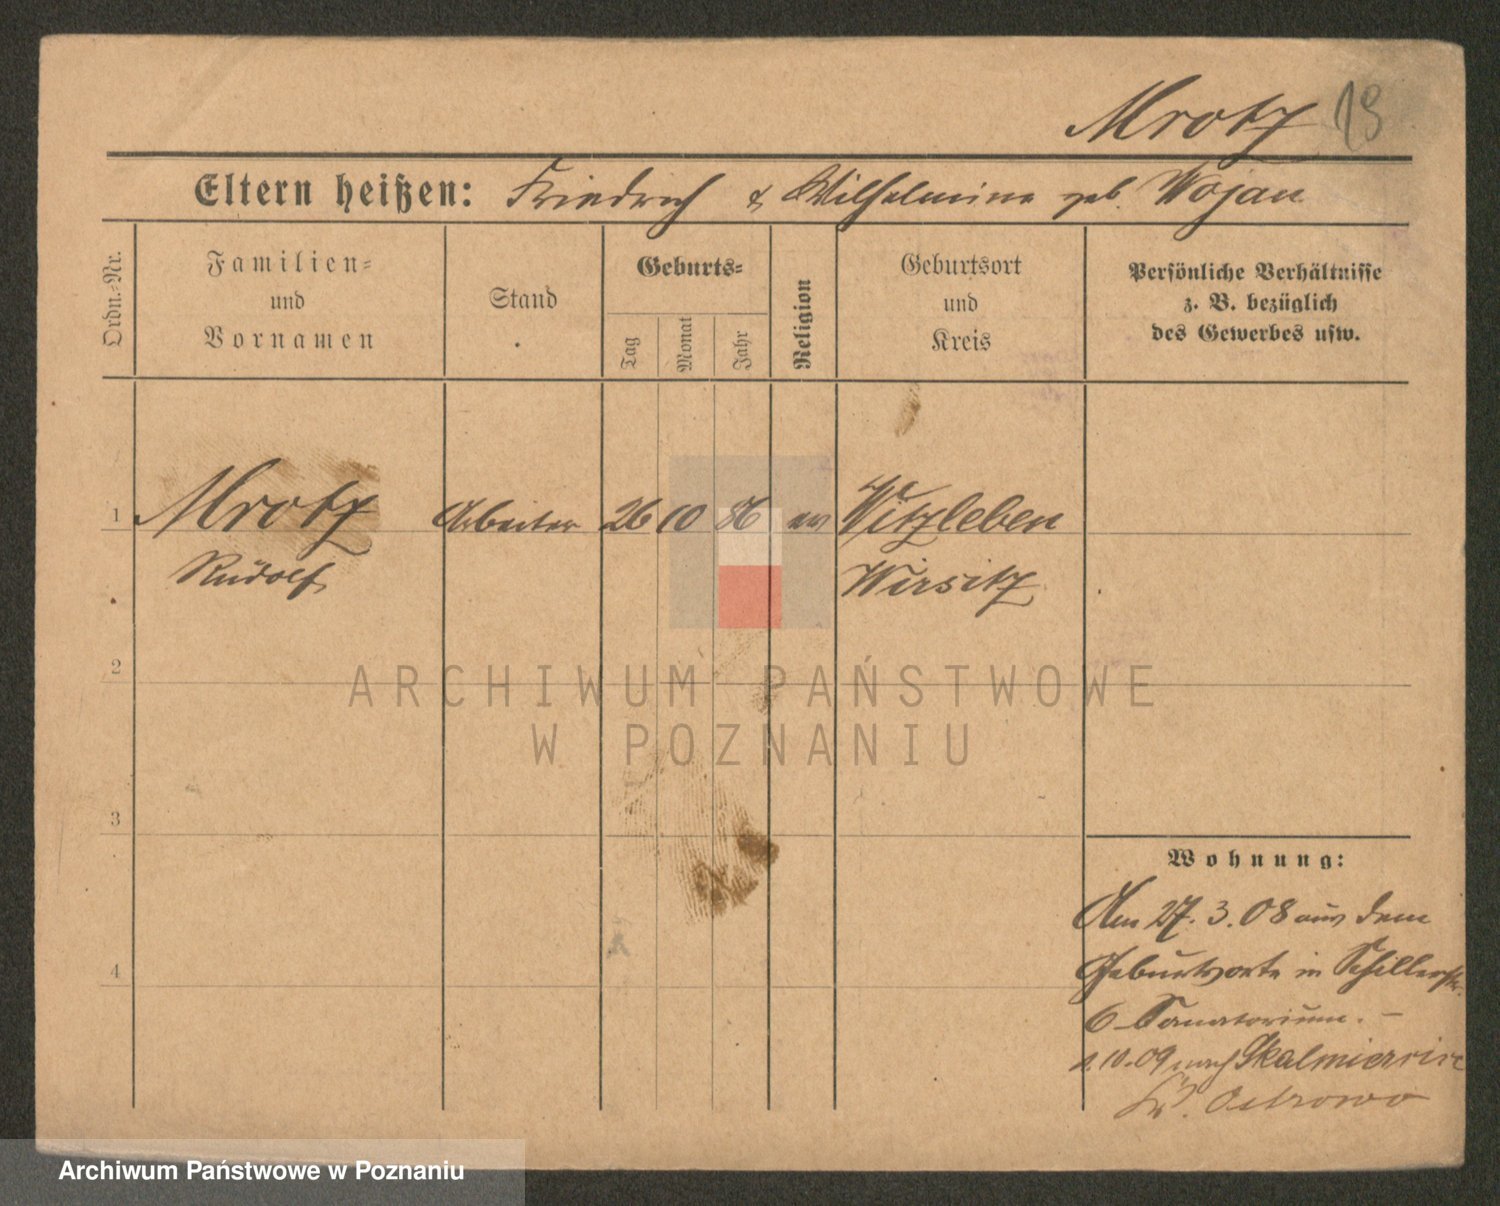 Mrotz 19
Eltern heißen: Friedrich & Wilhelmine geb. Wojan
Ordn.-Nr.
Familien-
und
Vornamen
Stand
Geburts-
Tag
Monat
Jahr
Religion
Geburtsort
und
Kreis
Persönliche Verhältnisse
z. B. bezüglich
des Gewerbes usw.
1 Mrotz Arbeiter 26 10 86 ev Witzleben
Rudolf Wirsitz
2
3
4
Wohnung:
Am 27.3.08 aus dem
Geburtsorte in Schillerstr.
6 Sanatorium. –
10.09 nach Skalmierzice
Kr. Ostrowo
ARCHIWUM PAŃSTWOWE
W POZNANIU
Archiwum Państwowe w Poznaniu